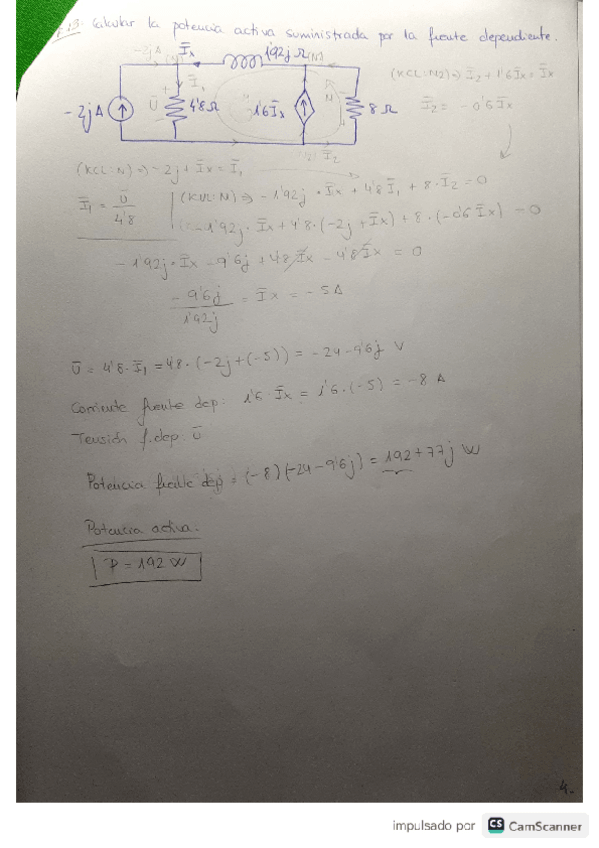 Calcular la potencia activa suministrada por la fuente dependiente.
-2j A Īx 1'92j Ω (N2)
(KCL:N2) => Ī2 + 1'6Īx = Īx
-2j A Ū Ī1 4'8 Ω 1'6Īx 8 Ω
Ī2 = -0'6Īx
Ī2
(KCL:N) => -2j + Īx = Ī1
Ī1 = Ū / 4'8
(KVL:N) => -1'92j · Īx + 4'8 Ī1 + 8 · Ī2 = 0
-1'92j · Īx + 4'8 · (-2j + Īx) + 8 · (-0'6 Īx) = 0
-1'92j · Īx - 9'6j + 4'8 Īx - 4'8 Īx = 0
-9'6j / 1'92j = Īx = -5 A
Ū = 4'8 · Ī1 = 4'8 · (-2j + (-5)) = -24 - 9'6j V
Corriente fuente dep: 1'6 · Īx = 1'6 · (-5) = -8 A
Tensión f. dep: Ū
Potencia fuente dep = (-8)(-24 - 9'6j) = 192 + 77j W
Potencia activa.
P = 192 W
4.
impulsado por CS CamScanner